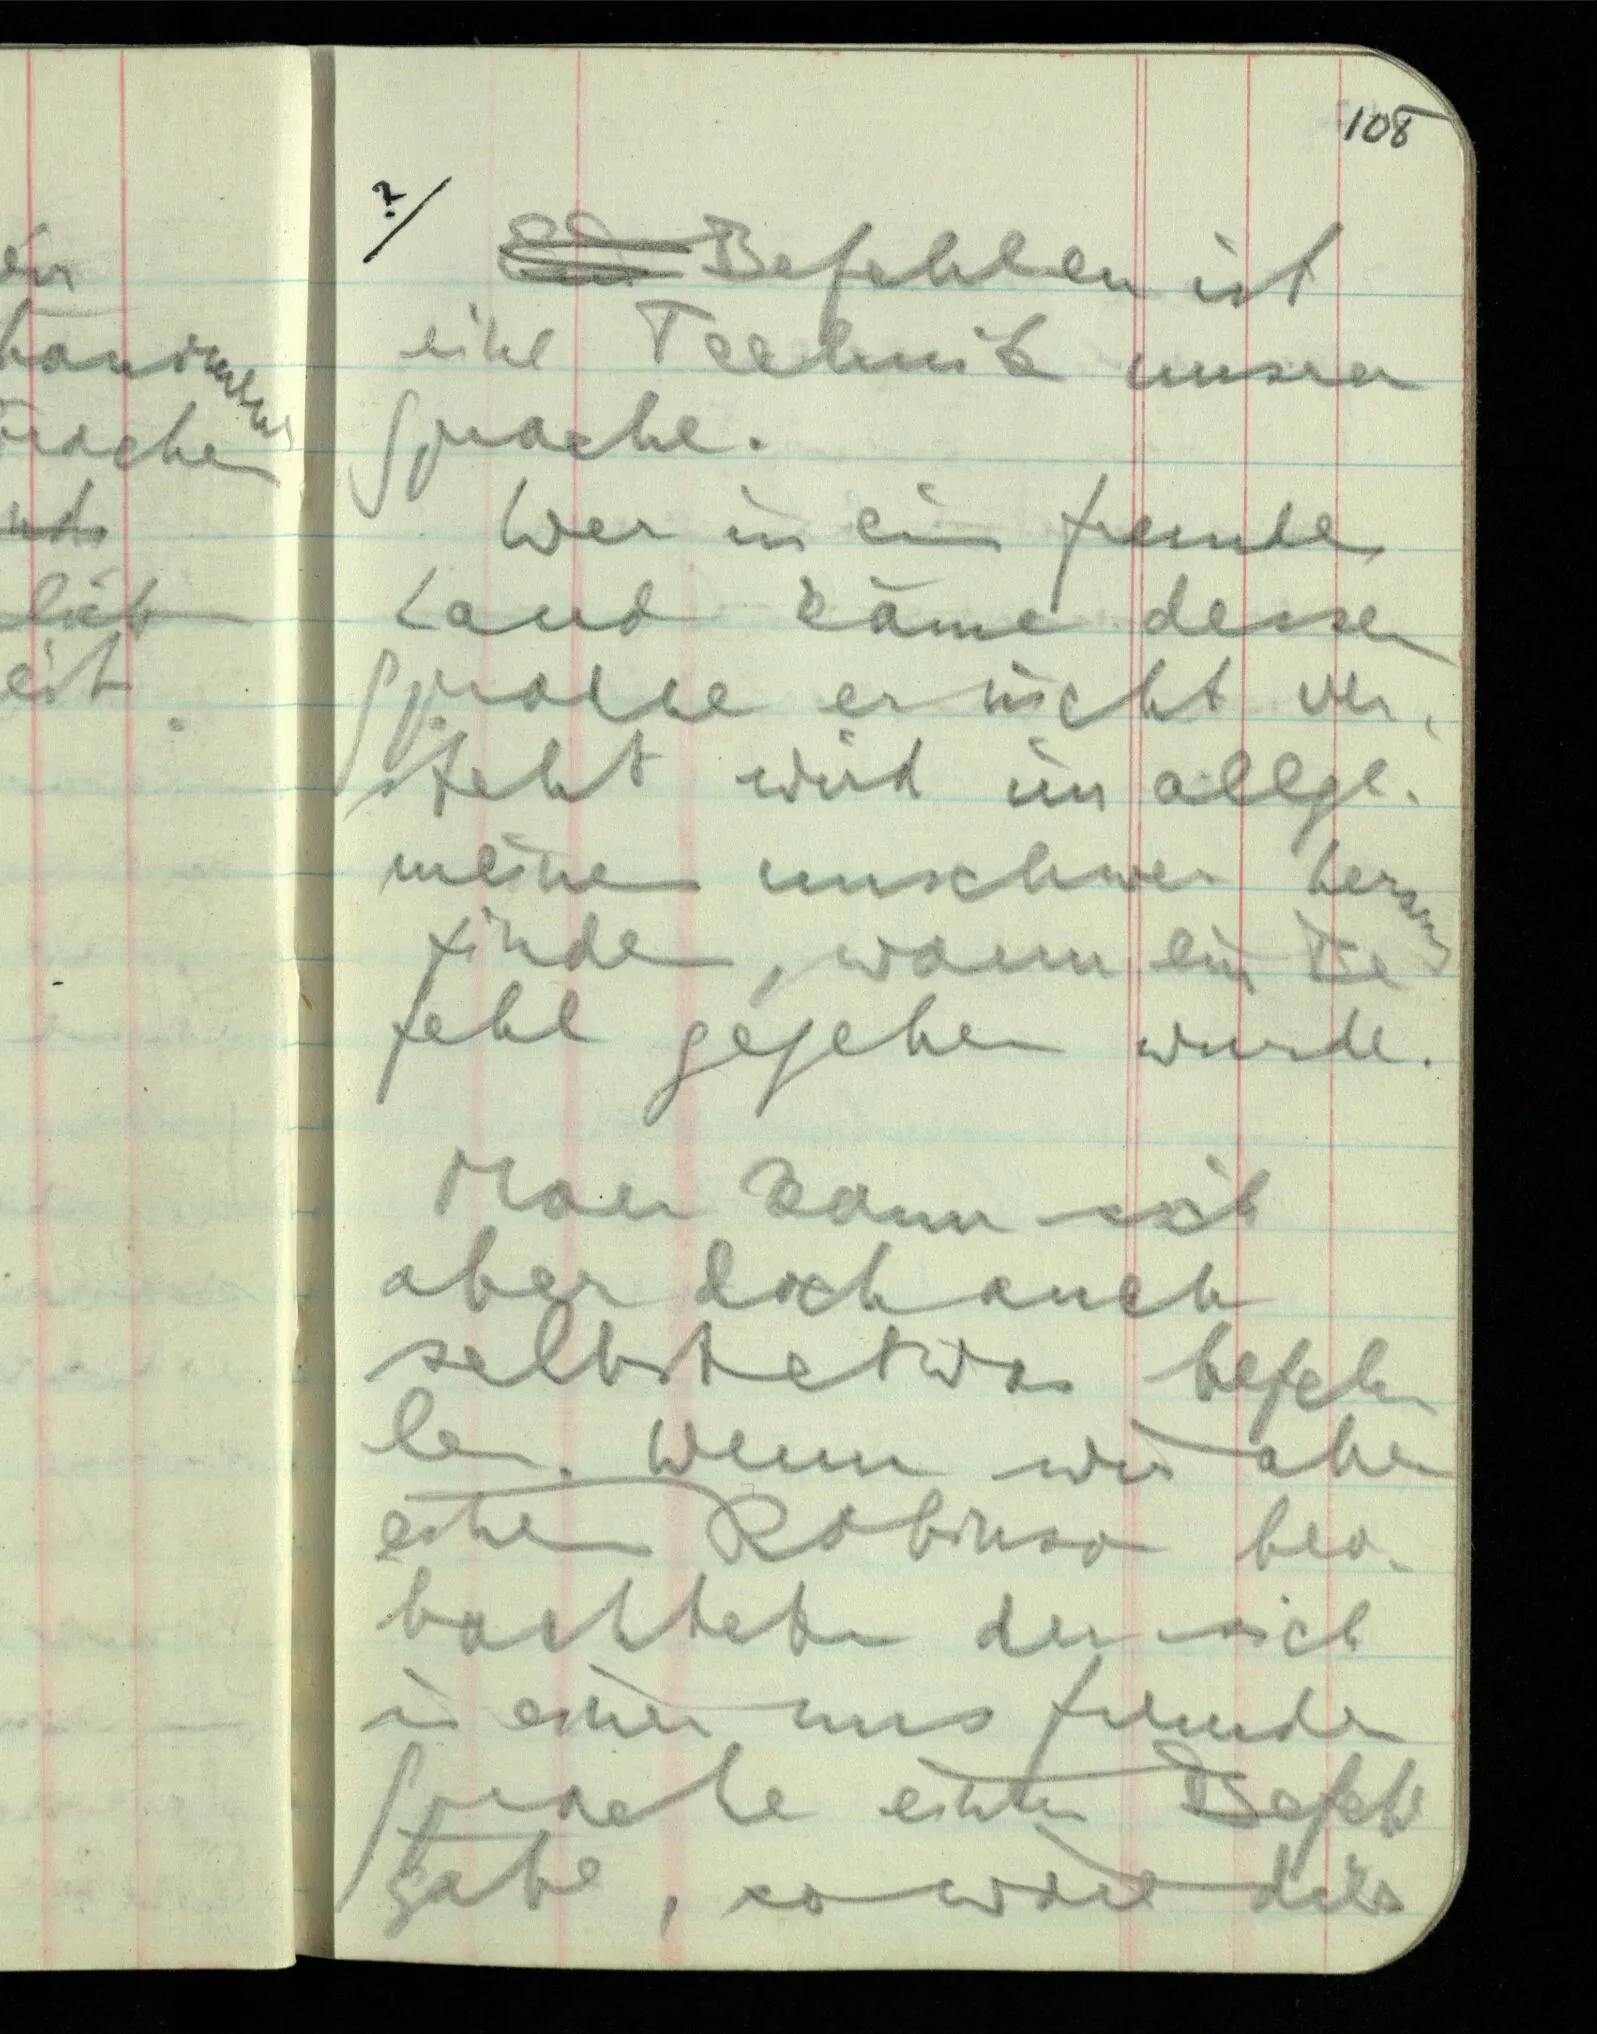 108
?/
Befehlen ist
eine Technik unsrer
Sprache.
Wer in ein fremdes
Land käme dessen
Sprache er nicht ver-
steht wird im allge-
meinen unschwer heraus
finden, wann ein Be
fehl gegeben wurde.
Man kann sich
aber doch auch
selbst etwas befeh
len. Wenn wir aber
einen Robinson beo-
bachteten der sich
in einer uns fremden
Sprache einen Befehl
gäbe, so wäre dies